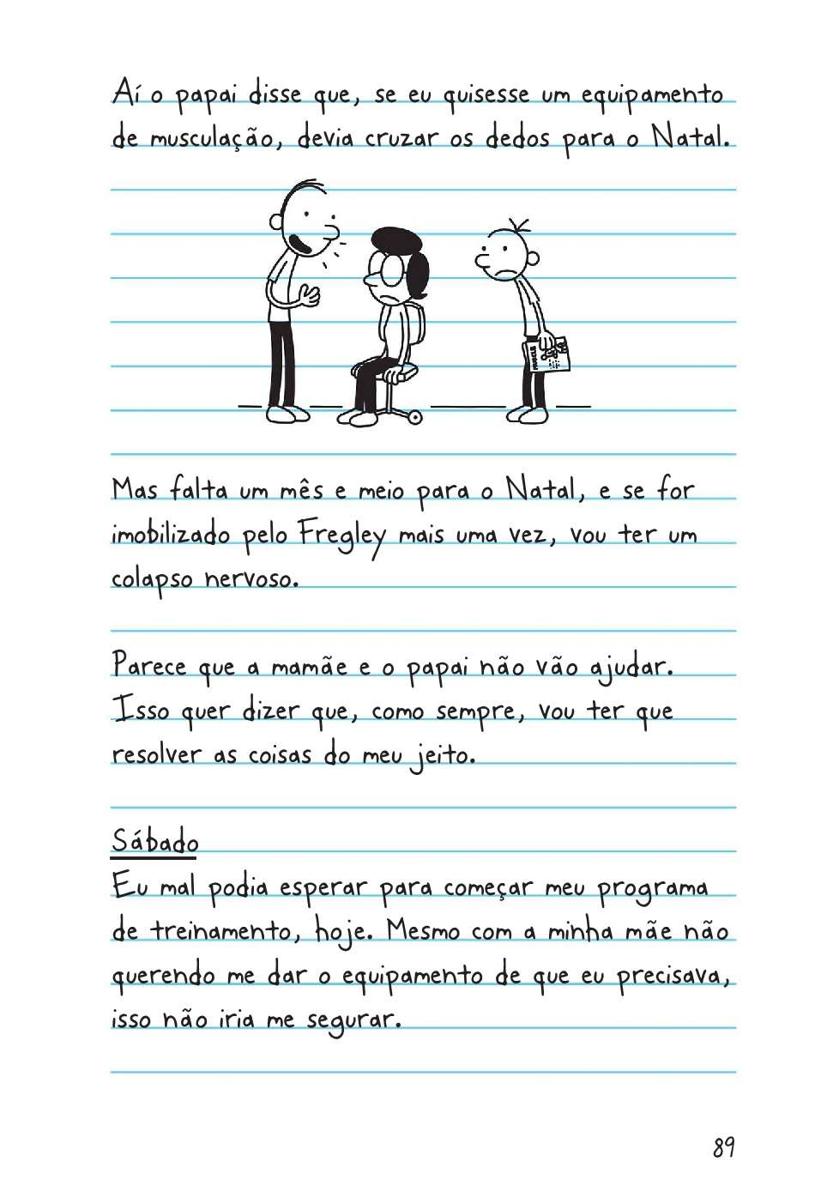 Aí o papai disse que, se eu quisesse um equipamento
de musculação, devia cruzar os dedos para o Natal.
MUSCLE
Mas falta um mês e meio para o Natal, e se for
imobilizado pelo Fregley mais uma vez, vou ter um
colapso nervoso.
Parece que a mamãe e o papai não vão ajudar.
Isso quer dizer que, como sempre, vou ter que
resolver as coisas do meu jeito.
Sábado
Eu mal podia esperar para começar meu programa
de treinamento, hoje. Mesmo com a minha mãe não
querendo me dar o equipamento de que eu precisava,
isso não iria me segurar.
89